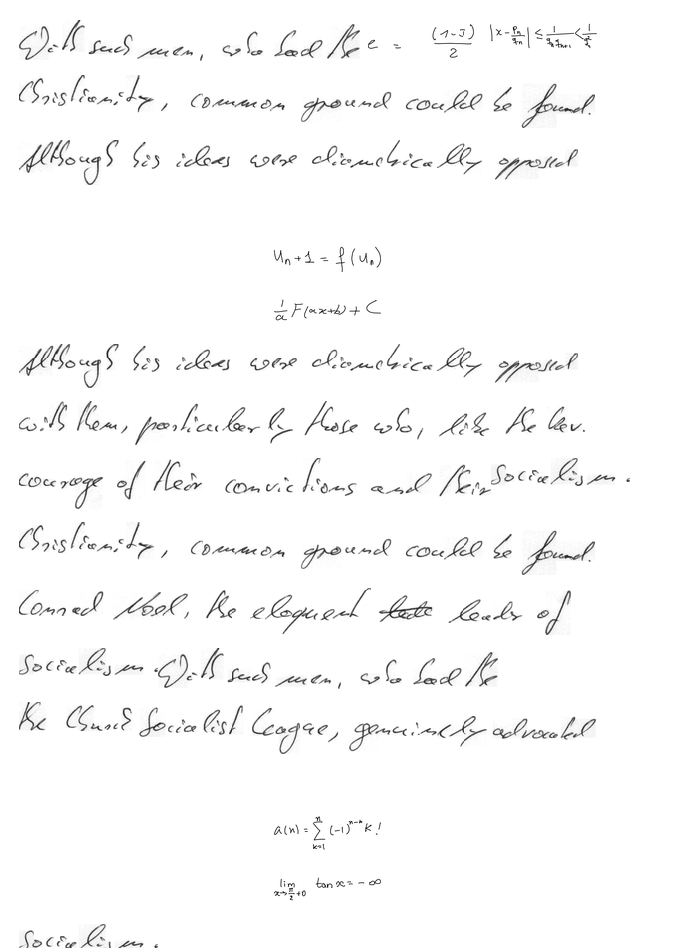 With such men, who had the c = \frac{(1-J)}{2} |x-\frac{p_n}{q_n}| \le \frac{1}{q_n q_{n+1}} < \frac{1}{q_n^2}
Christianity, common ground could be found.
Although his ideas were diametrically opposed
u_n+1 = f(u_n)
\frac{1}{a} F(ax+b) + C
Although his ideas were diametrically opposed
with them, particularly those who, like the Rev.
courage of their convictions and their Socialism.
Christianity, common ground could be found.
Conrad Noel, the eloquent leader of
Socialism. With such men, who had the
the Church Socialist League, genuinely advocated
a(n) = \sum_{k=1}^{n} (-1)^{n-k} k!
\lim_{x \to \frac{\pi}{2}+0} \tan x = -\infty
Socialism.